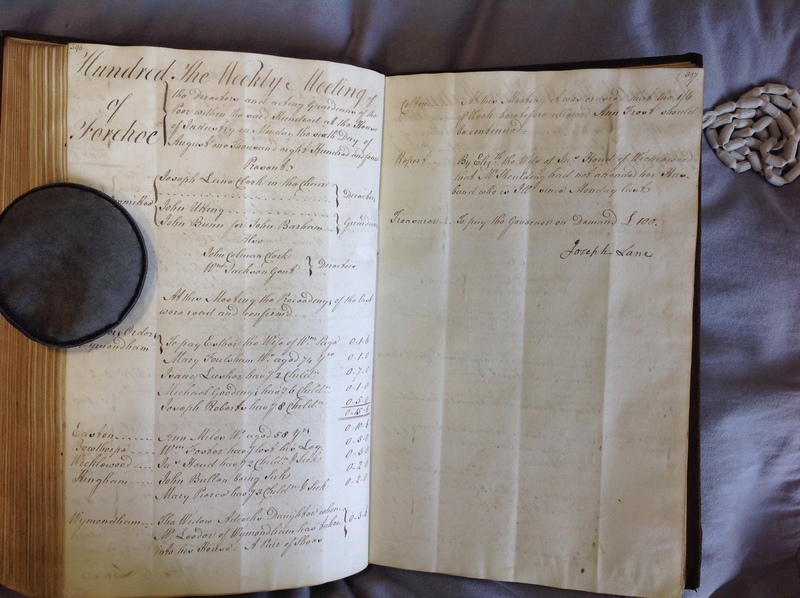 396
Hundred
of
Forehoe
The Weekly Meeting of
the Directors and acting Guardians of the
Poor within the said Hundred at the House
of Industry on Monday the sixth Day of
August one Thousand eight Hundred and four
Present
Joseph Lane Clerk in the Chair
Directors
John
John Bunn for John Barham
Guardians
Also
John Colman Clerk
Wm Jackson Gent
Directors
At this Meeting the Proceedings of the last
were read and confirmed
Order
Wymondham
To pay Esther the Wife of Wm 0..1..6
Mary Foulsham Wo. aged 74 Yrs 0..1..0
Isaac Lusher havg 2 Childn 0..7..0
Michael Gooding havg 6 Childn 0..1..0
Joseph Roberts havg 8 Childn 0..5..0
0..15..6
Easton Ann Miles Wo. aged 58 Yrs 0..10..6
Wm Foster havg lost his Leg 0..5..0
Wicklewood Jno Hand havg 2 Childn & Sick 0..5..0
Hingham John Bullen being Sick 0..2..0
Mary Pierce havg 3 Childn & Sick 0..2..0
Wymondham The Widow Adcocks Daughter whom
Mr. Leeder of Wymondham has taken
into his House. A Pair of Shoes
0..3..6
397
At this Meeting it was ordered that the 1/6
of Week heretofore allowed Ann Frost should
be continued
Report By Elizth the Wife of Jno Hand of Wicklewood
that Mr Skoulding had not attended her Hus-
band who is Ill since Monday last
Treasurer To pay the Governor on Demand £100.
Joseph Lane